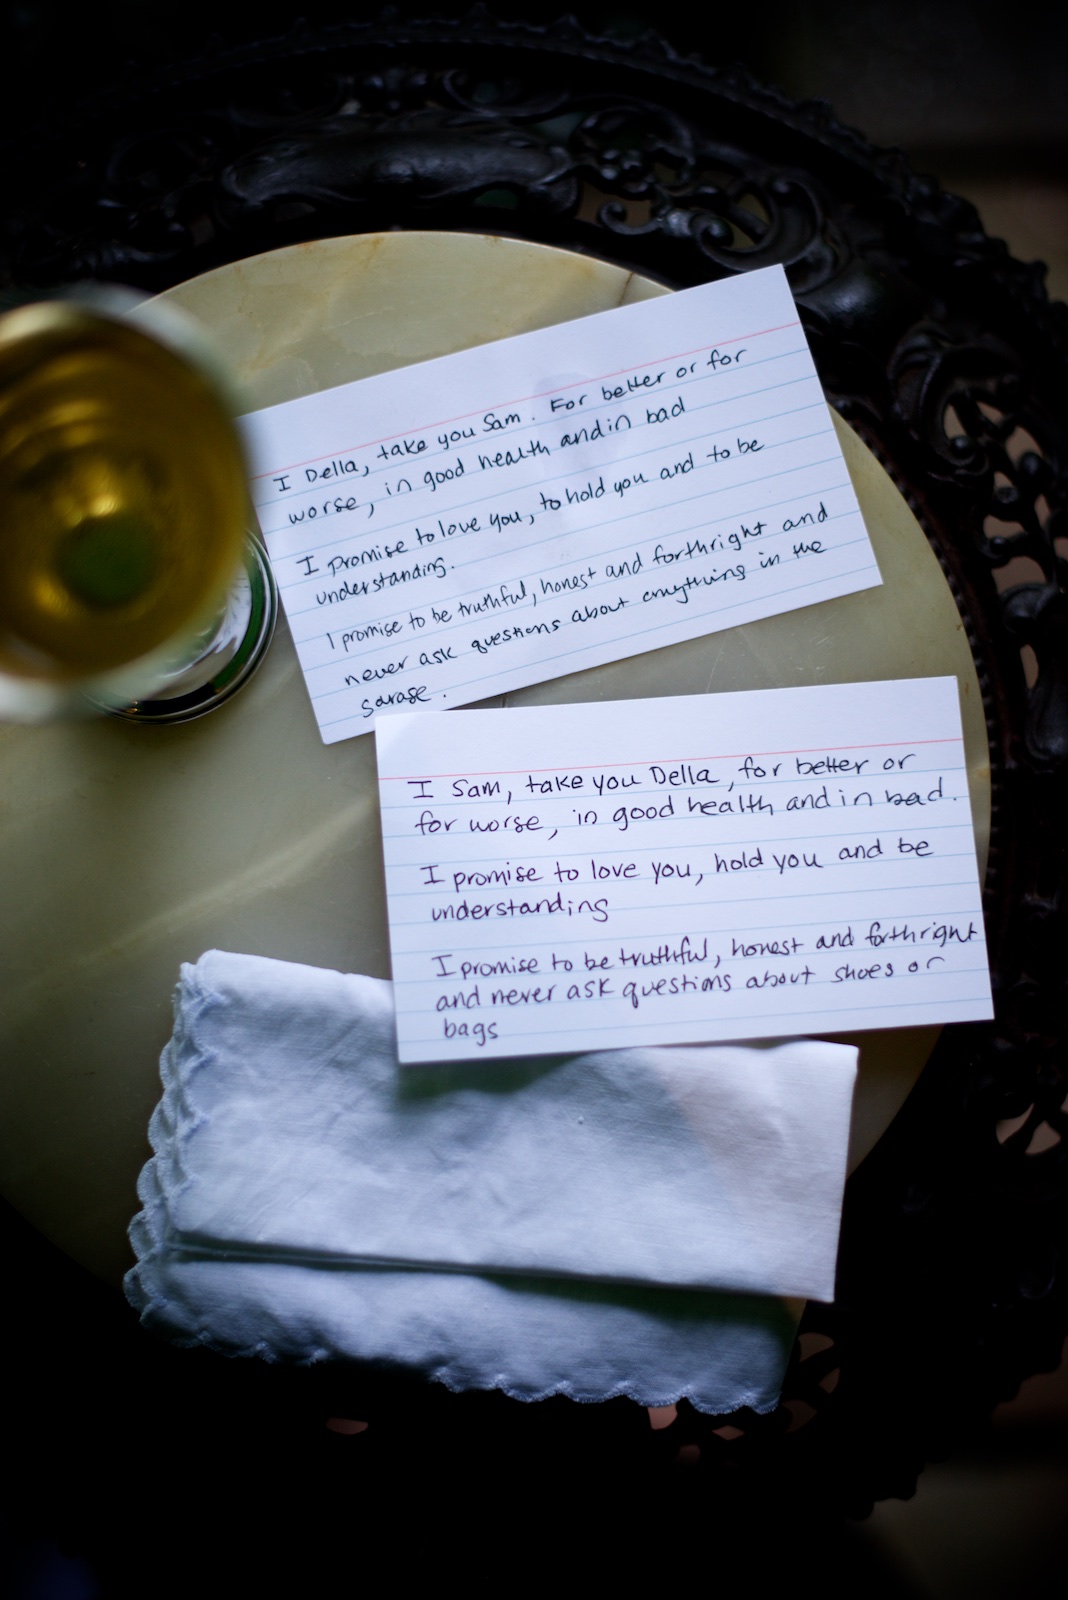 I Della, take you Sam. For better or for
worse, in good health and in bad
I promise to love you, to hold you and to be
understanding.
I promise to be truthful, honest and forthright and
never ask questions about anything in the
garage.
I Sam, take you Della, for better or
for worse, in good health and in bad.
I promise to love you, hold you and be
understanding
I promise to be truthful, honest and forthright
and never ask questions about shoes or
bags